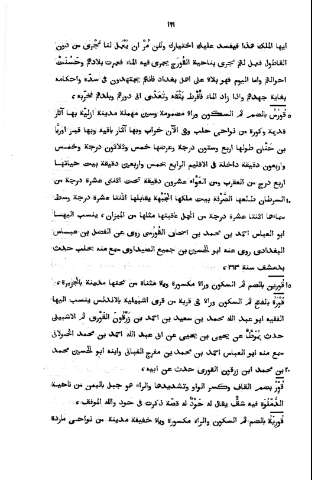 ١٩٩
ايها الملك هذا فيفسد عليك اختيارك ولكن مُرْ ان يُعْمَل لنا مَجْرى من دون
القاطول فعمل لهم مَجْرى بناحية القُورَج يجرى فيه الماء فعمرت بلادهم وحَسُنَتْ
احوالهم واما اليوم فهو بلاء على اهل بغداد فانهم يجتهدون في سدّه واحكامه
بغاية جهدهم واذا زاد الماء فأفرط بَثَقَهُ وتعدّى الى دورهم وبلدهم فخربه،
قُورُسُ بالضم ثم السكون وراء مضمومة وسين مهملة مدينة ازلية بها آثار
قديمة وكورة من نواحى حلب وفى الآن خراب وبها آثار باقية وبها قبر اوريا
بن حَنَان طولها اربع وستون درجة وعرضها خمس وثلاثون درجة وخمس
واربعون دقيقة داخلة في الاقليم الرابع خمس واربعون دقيقة بيت حياتها
اربع درج من العقرب ومن العَوَّاء عشرون دقيقة تحت اثنتى عشرة درجة من
السرطان يقابلها اثنتا عشرة درجة وسط
سماءها اثنتا عشرة درجة من الحمل عاقبتها مثلها من الميزان، ينسب اليها
ابو العباس احمد بن محمد بن اسحاق القُورُسى روى عن الفضل بن عباس
البغدادى روى عنه ابو الحسين بن جميع الصيداوى سمع منه بحلب حدث
بدمشق سنة ٣٦٣،
قُورِين بالضم ثم السكون وراء مكسورة وياء مثناة من تحتها مدينة بالجزيرة،
قَوْرَةُ بالفتح ثم السكون وراء في قرية من قرى اشبيلية بالاندلس ينسب اليها
الفقيه ابو عبد الله محمد بن سعيد بن احمد بن زَرْقُون القَوْرى ثم الاشبيلى
حدث بمُوَطَّأ عن يحيى بن يحيى عن ابى عبد الله احمد بن محمد الخولانى
سمع منه ابو العباس احمد بن محمد بن مفرج النباتى وابنه ابو الحسين محمد
بن محمد ابن زرقون القورى حدث عن ابيه،
قُوِّر بضم القاف وكسر الواو وتشديدها والراء هو جبل باليمن من ناحية
الدُّمْلُوَة فيه شقّ يقال له حَوْد له قصة ذكرت في حود والله الموفق،
قُورِيَةُ بالضم ثم السكون والراء مكسورة وياء خفيفة مدينة من نواحى ماردة